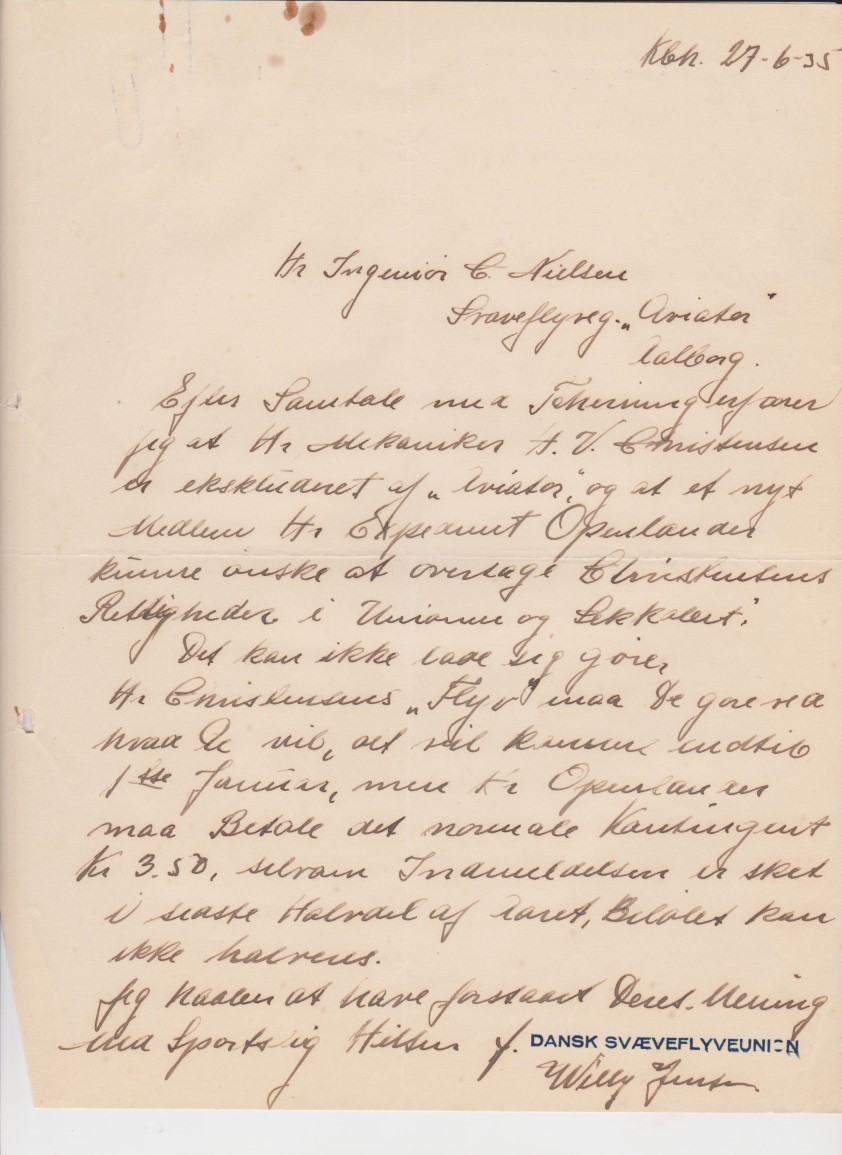 Kbh. 27-6-35
Hr Ingeniør C. Nielsen
Svæveflyveg. „Aviator"
Aalborg.
Efter Samtale med Tscherning erfarer
jeg at Hr Mekaniker H. V. Christensen
er ekskluderet af „Aviator", og at et nyt
Medlem Hr Expedient Openlander
kunne ønske at overtage Christensens
Rettigheder i Unionen og
Det kan ikke lade sig gøre,
Hr Christensens „Flyv" maa De gøre ved
hvad De vil, det vil komme indtil
1ste Januar, men Hr Openlander
maa Betale det normale Kontingent
Kr 3.50, selvom Indmeldelsen er sket
i sidste Halvdel af Aaret, Beløbet kan
ikke halveres.
Jeg haaber at have forstaaet Deres Mening
Med Sportslig Hilsen f. DANSK SVÆVEFLYVEUNION
Willy Jensen